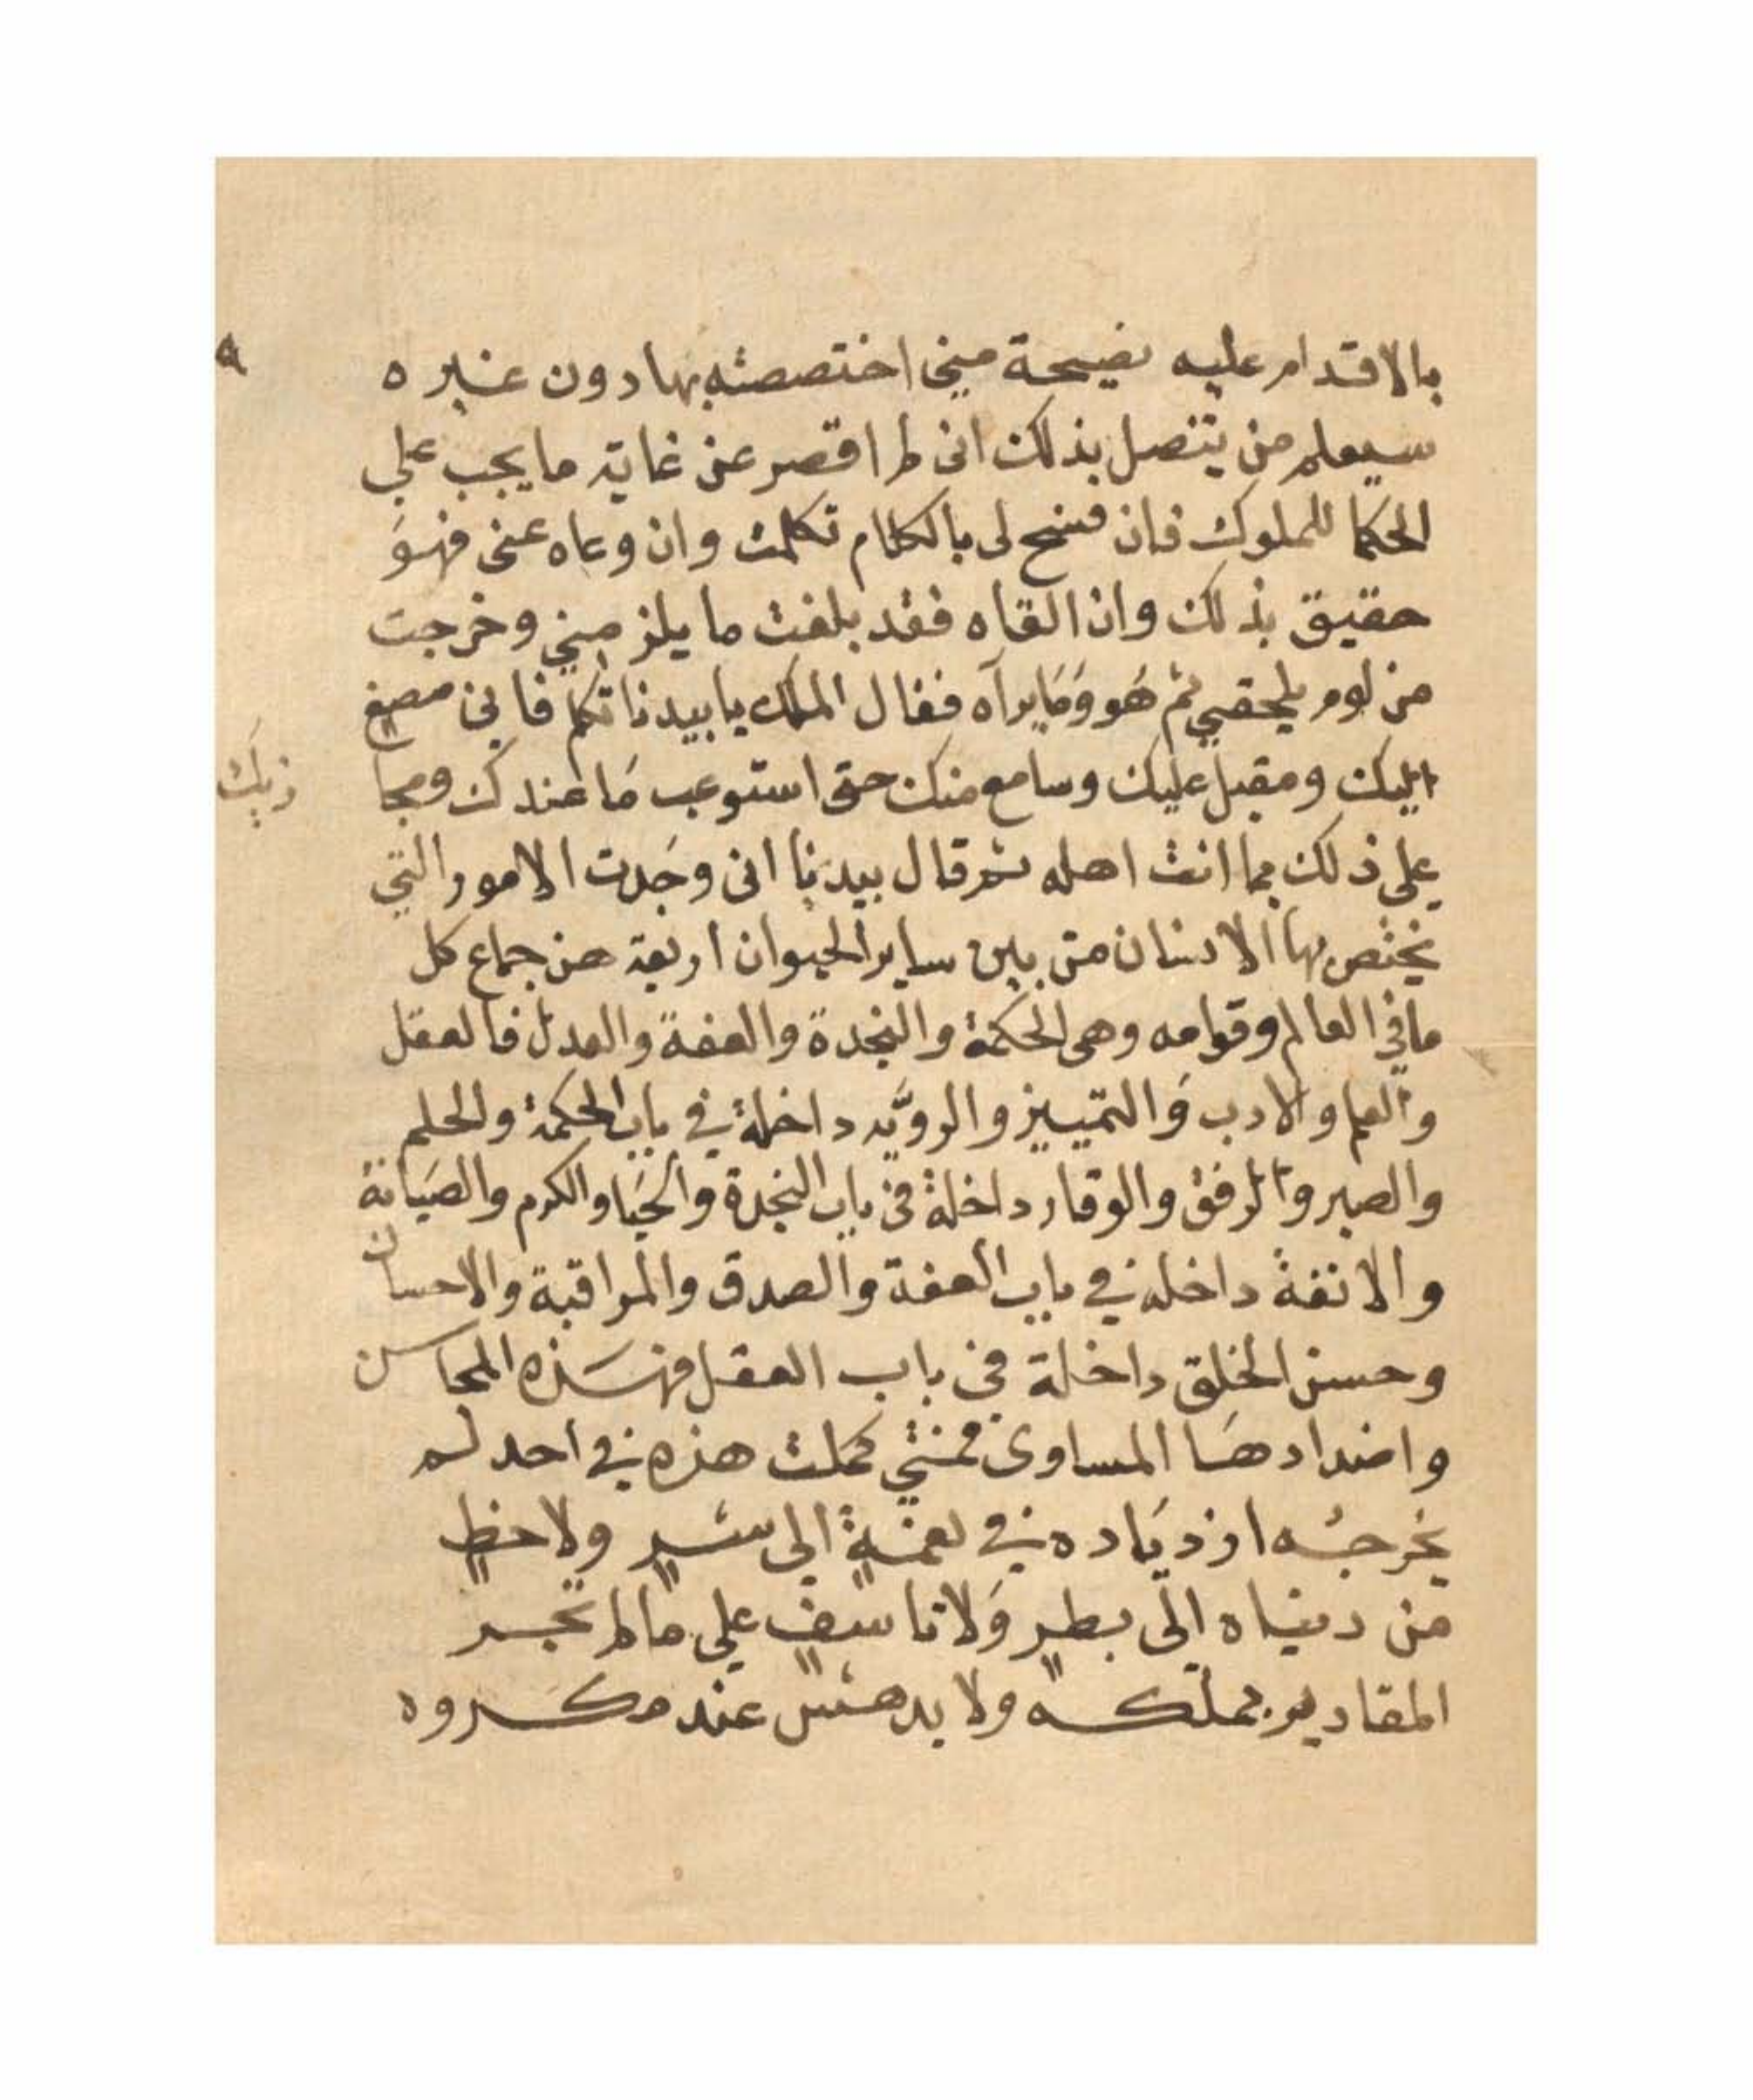 ٩
بالاقدام عليه نصيحة مني اختصصته بها دون غيره
سيعلم من يتصل بذلك اني لم اقصر عن غاية ما يجب علي
الحكما للملوك فان فسح لي بالكلام تكلمت وان وعاه عني فهو
حقيق بذلك وان القاه فقد بلغت ما يلزمني وخرجت
من لوم يلحقني ثم هو وما يراه فقال الملك يا بيدنا تكلم فاني مصغ
اليك ومقبل عليك وسامع منك حتى استوعب ما عندك ومجا
زيك
على ذلك بما انت اهله ثم قال بيدنا اني وجدت الامور التي
يختص بها الانسان من بين ساير الحيوان اربعة من جماع كل
ما في العالم وقوامه وهي الحكمة والنجدة والعفة والعدل فالعقل
والعلم والادب والتمييز والرويّه داخلة في باب الحكمة والحلم
والصبر والرفق والوقار داخلة في باب النجدة والحيا والكرم والصيانة
والانفة داخله في باب العفة والصدق والمراقبة والاحسان
وحسن الخلق داخلة في باب العقل فهذه المحاسن
واضدادها المساوى فمتي كملت هذه في احد لم
يخرجه ازدياده في نعمةٍ الي شرٍ ولا حظٍ
من دنياه الى بطرٍ ولا تاسفٍ علي ما لم تجر
المقادير بملكه ولا يدهش عند مكروه